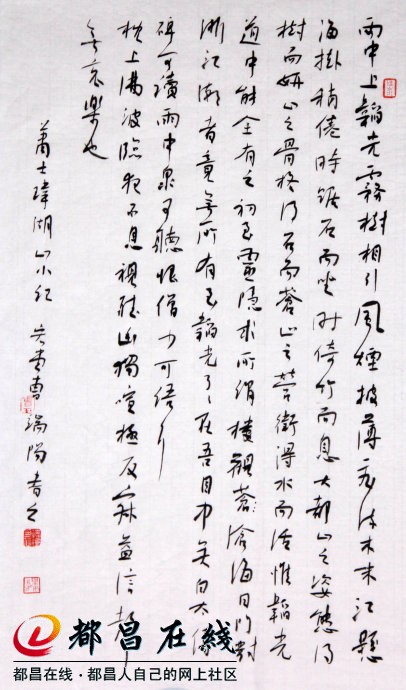 雨中上韜光霧樹相引風煙披薄飛流木末江懸
海掛稍倦時踞石而坐時倚竹而息大都山之姿態得
樹而妍山之骨格得石而蒼山之營衛得水而活惟韜光
道中能全有之初至靈隱求所謂樓觀滄海日門對
浙江潮者竟無所有至韜光了了在吾目中矣白太傅
碑可讀雨中泉可聽恨僧少可語耳
枕上沸波夜不息視聽幽獨喧極反寂益信聲
無哀樂也
蕭士瑋湖山小記 曹端陽書之
都昌在线
都昌在线·都昌人自己的网上社区